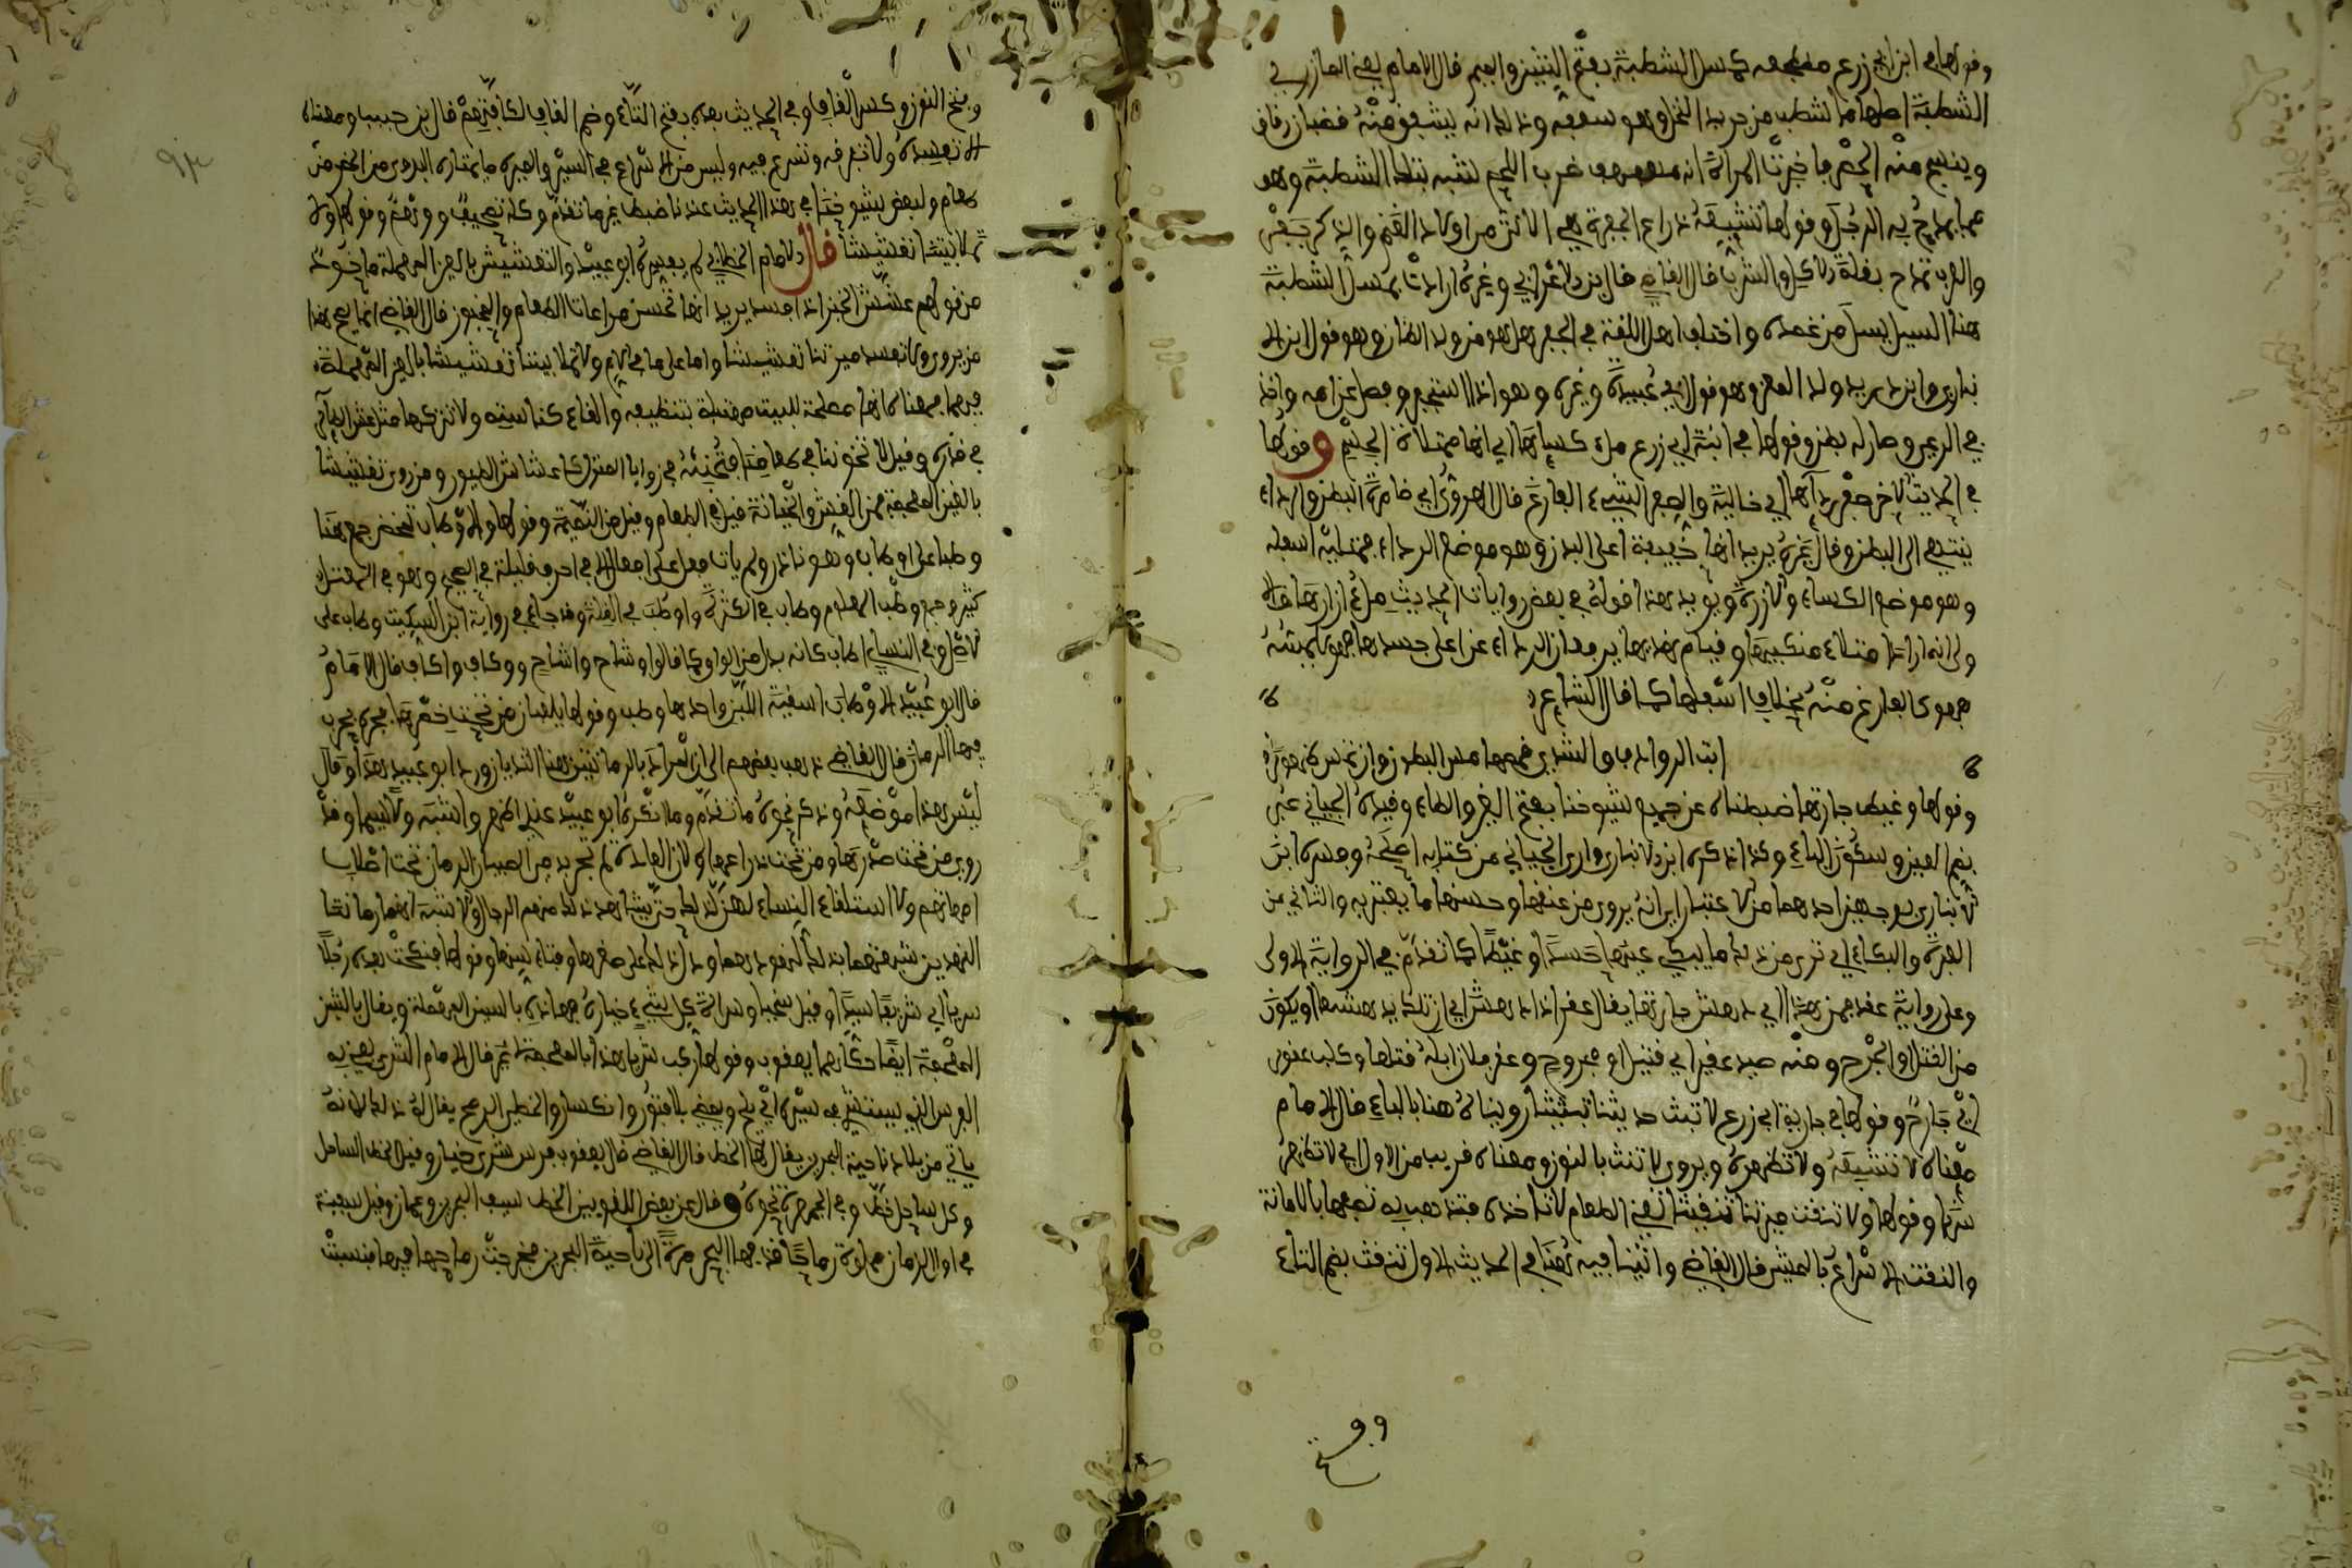 وقولها في ابن ابي زرع مضجعه كمسل الشطبة بفتح الشين والميم قال الامام يعني المازري
الشطبة اصلها ما شطب من جريد النخل وهو سعفه وذلك انه يشقق منه قضبان رقاق
وينسج منه الحصر فاخبرت المراة انه مهفهف ضرب اللحم شبه بتلك الشطبة وهو
مما يمدح به الرجل وقولها تشبعه ذراع الجفرة هي الانثى من اولاد الغنم والذكر جفر
والعرب تمدح بقلة الاكل والشرب قال القاضي قال ابن الاعرابي وغيره ارادت بمسل الشطبة
هنا السيف يسل من غمده واختلف اهل اللغة في الجفر هل هو من ولد الضان وهو قول ابن الا
نباري وابن دريد ولد المعز وهو قول ابي عبيدة وغيره وهو اذا استجفر وفصل عن امه واخذ
في الرعي وصار له بطن وقولها في ابنة ابي زرع ملء كسائها اي انها ممتلئة الجسم وقولها
في الحديث الاخر صفر ردائها اي خالية والصفر الشيء الفارغ قال الهروي اي ضامرة البطن والرداء
ينتهي الى البطن وقال غيره يريد انها خفيفة اعلى البدن وهو موضع الرداء ممتلية اسفله
وهو موضع الكساء والازرة ويويد هذا قوله في بعض روايات الحديث ملء ازارها والا
ولى انه اراد امتلاء منكبيها وقيام نهديها يرفعان الرداء عن اعلى جسدها فهو لا يمسه
فهو كالفارغ منه بخلاف اسفلها كما قال الشاعر
ابت الروادف والثدي لقمصها مس البطون وان تمس ظهورا
وقولها وغيظ جارتها ضبطناه عن جميع شيوخنا بفتح الغين والظاء وقيده الجياني عبر
بضم العين وسكون الباء وكذا ذكره ابن الانباري وارى الجياني من كتابه اصلحه وفسره ابن
الانباري بوجهين احدهما من الاعتبار اي انه يرى من عفتها وحسنها ما يعتبر به والثاني من
العبرة والبكاء اي ترى من ذلك ما يبكي عينها حسدا وغيظا كما تقدم في الرواية الاولى
وعلى رواية عقر فمن هذا اي دهش جارتها يقال عقر اذا دهش اي ان ذلك يدهشها او يكون
من القتل او الجرح ومنه صيد عقير اي قتيل او مجروح وعقر فلان ابله قتلها وكلب عقور
اي جارح وقولها في جارية ابي زرع لا تبث حديثنا تبثيثا رويناه هنا بالباء قال الامام
معناه لا تشيعه ولا تظهره ويروى لا تنث بالنون ومعناه قريب من الاول اي لا تظهر
سرنا وقولها ولا تنقث ميرتنا تنقيثا يعني الطعام لا تاخذه فتذهب به تصفها بالامانة
والنقث الاسراع بالمشي قال القاضي واتينا فيه هنا في الحديث الاول تنقث بضم التاء
وفتح النون وكسر القاف وفي الحديث بعده بفتح التاء وضم القاف لكافتهم قال بن حبيب ومعناه
لا تفسده ولا تفرقه وتسرع فيه وليس من الاسراع في السير والميرة ما يمتاره البدوي من الحضر من
طعام ولبعض شيوخنا في هذا الحديث عندنا ضبط غير ما تقدم وكله تصحيف ووهم وقولها ولا
تملا بيتنا تعشيشا قال الامام الخطابي لم يفسره ابو عبيد والتعشيش بالعين المهملة ماخوذ
من قولهم عشش الخبز اذا فسد يريد انها تحسن مراعات الطعام والمخبوز قال القاضي انما يصح هذا
من يروي ولا تفسد ميرتنا تعشيشا واما على ما في الام ولا تملا بيتنا تعشيشا بالعين المهملة
فمعناه انها مصلحة للبيت مهتبلة بتنظيفه والقاء كناسته ولا تتركها مثل عش الطائر
في قذره وقيل لا تخوننا في طعامنا فتخبئه في زوايا المنزل كاعشاش الطيور ومن روى تغشيشا
بالغين المعجمة فمن الغش والخيانة قيل في الطعام وقيل من النميمة وقولها والاوطاب تمخض جمع هنا
وطبا على اوطاب وهو نادر ولم يات فعل على افعال الا في احرف قليلة في الصحيح وهو في المعتل
كثير وجمع وطب المعلوم وطاب في الكثرة واوطب في القلة وقد جاء في رواية ابن السكيت وطاب على
الاصل وفي النساي اطاب كانه بدل من الواو كما قالوا وشاح واشاح ووكاف واكاف قال الامام
قال ابو عبيد الاوطاب اسقية اللبن واحدها وطب وقولها يلعبان من تحت خصرها يجري
فيها الرمان قال القاضي ذهب بعضهم الى ان المراد بالرمانتين هنا الثديان ورد ابو عبيد هذا وقال
ليس هذا موضعه وذكر نحوه ما تقدم وما انكره ابو عبيد عندي اظهر واشبه ولا سيما وقد
روي من تحت صدرها ومن تحت ذراعيها ولان العادة لم تجر بدمي الصبيان الرمان تحت اصلاب
امهاتهم ولا استلقاء النساء لهن كذلك حتى يشاهد ذلك منهم الرجال والاشبه انهما رمانتا
النهدين شبهتهما بذلك لنهودهما ودل ذلك على صغرها وفتاء سنها وقولها فنكحت بعده رجلا
سريا اي شريفا سيدا وقيل سخيا وسراة كل شيء خياره فهاذه بالسين المهملة ويقال بالشين
المعجمة ايضا حكاهما يعقوب وقولها ركب شريا هذا بالمعجمة ثم قال الامام الشري يعني به
الفرس الذي يستشري في سيره اي يلح ويمضي بلا فتور وانكسار والخطي الرمح يقال له ذلك لانه
ياتي من بلاد ناحية البحرين يقال لها الخط قال القاضي قال يعقوب فرس شري خيار وقيل الخط الساحل
وكل ساحل خط وفي الجمهرة نحوه وقال عن بعض اللغويين الخط سيف البحرين وعمان وقيل سفينة
في اول الزمان مملوة رماحا قذفها البحر مرة الى ناحية البحرين فخرجت رماحها فيها فنسبت